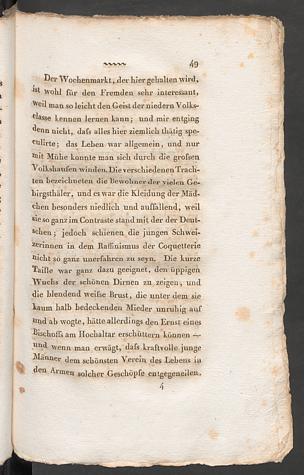 49
Der Wochenmarkt, der hier gehalten wird,
ist wohl für den Fremden sehr interesant,
weil man so leicht den Geist der niedern Volks-
classe kennen lernen kann; und mir entging
denn nicht, daß alles hier ziemlich thätig spe-
culirte; das Leben war allgemein, und nur
mit Mühe konnte man sich durch die großen
Volkshaufen winden. Die verschiedenen Trach-
ten bezeichneten die Bewohner der vielen Ge-
birgsthäler, und es war die Kleidung der Mäd-
chen besonders niedlich und auffallend, weil
sie so ganz im Contraste stand mit der der Deut-
schen; jedoch schienen die jungen Schwei-
zerinnen in dem Raffinismus der Coquetterie
nicht so ganz unerfahren zu seyn. Die kurze
Taille war ganz dazu geeignet, den üppigen
Wuchs der schönen Dirnen zu zeigen, und
die blendend weiße Brust, die unter dem sie
kaum halb bedeckenden Mieder unruhig auf
und ab wogte, hätte allerdings den Ernst eines
Bischoffs am Hochaltar erschüttern können —
und wenn man erwägt, daß kraftvolle junge
Männer dem schönsten Verein des Lebens in
den Armen solcher Geschöpfe entgegeneilen,
4